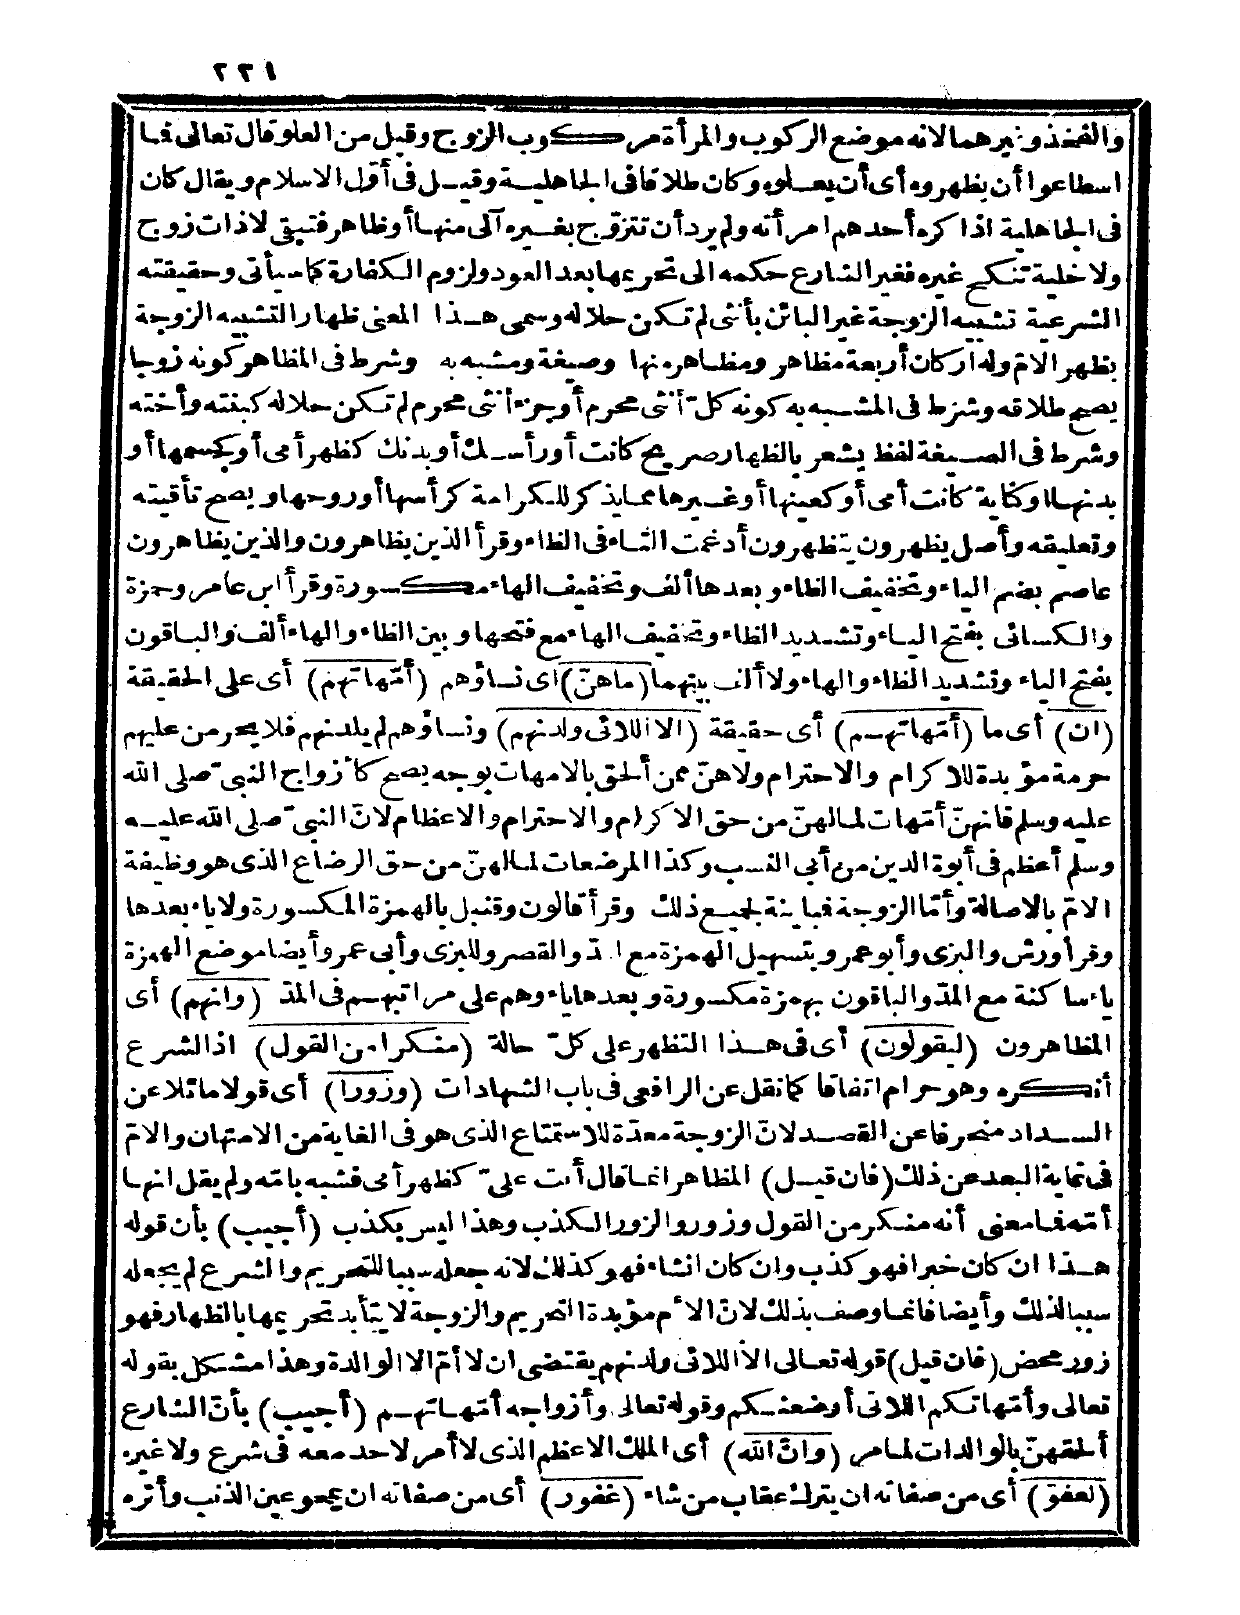 ٢٢١
والفخذ وغيرهما لانه موضع الركوب والمرأة مركوب الزوج وقيل من العلو قال تعالى فما
اسطاعوا أن يظهروه أى أن يعلوه وكان طلاقا فى الجاهلية وقيل فى أوّل الاسلام ويقال كان
فى الجاهلية اذا كره أحدهم امرأته ولم يرد أن تتزوّج بغيره آلى منها أو ظاهر فتبقى لا ذات زوج
ولا خلية تنكح غيره فغير الشارع حكمه الى تحريمها بعد العود ولزوم الكفارة كما سيأتى وحقيقته
الشرعية تشبيه الزوجة غير البائن بأنثى لم تكن حلاله وسمى هذا المعنى ظهار التشبيه الزوجة
بظهر الامّ وله اركان أربعة مظاهر ومظاهر منها وصيغة ومشبه به وشرط فى المظاهر كونه زوجا
يصح طلاقه وشرط فى المشبه به كونه كلّ أنثى محرم أو جزء أنثى محرم لم تكن حلاله كبنته وأخته
وشرط فى الصيغة لفظ يشعر بالظهار صريح كانت أو رأسك أو بدنك كظهر أمى أو كجسمها أو
بدنها او كناية كانت أمى أو كعينها أو غيرها مما يذكر للكرامة كرأسها أو روحها ويصح تأقيته
وتعليقه وأصل يظهرون يتظهرون أدغمت التاء فى الظاء وقرأ الذين يظاهرون والذين يظاهرون
عاصم بضم الياء وتخفيف الظاء وبعدها ألف وتخفيف الهاء مكسورة وقرأ ابن عامر وحمزة
والكسائى بفتح الياء وتشديد الظاء وتخفيف الهاء مع فتحها وبين الظاء والهاء ألف والباقون
بفتح الياء وتشديد الظاء والهاء ولا ألف بينهما (ماهنّ) اى نساؤهم (أمّهاتهم) أى على الحقيقة
(ان) أى ما (أمّهاتهم) أى حقيقة (الا اللائى ولدنهم) ونساؤهم لم يلدنهم فلا يحرمن عليهم
حرمة مؤبدة للاكرام والاحترام ولا هنّ ممن ألحق بالامهات بوجه يصح كأزواج النبىّ صلى الله
عليه وسلم فانهنّ أمّهات لما لهنّ من حق الاكرام والاحترام والاعظام لانّ النبىّ صلى الله عليه
وسلم أعظم فى أبوة الدين من أبى النسب وكذا المرضعات لما لهنّ من حق الرضاع الذى هو وظيفة
الامّ بالاصالة وأمّا الزوجة فباينة لجميع ذلك وقرأ قالون وقنبل بالهمزة المكسورة ولا ياء بعدها
وقرأ ورش والبزى وأبو عمرو بتسهيل الهمزة مع المدّ والقصر وللبزى وأبى عمرو أيضا موضع الهمزة
ياء ساكنة مع المدّ والباقون بهمزة مكسورة وبعدها ياء وهم على مراتبهم فى المدّ (وانهم) أى
المظاهرون (ليقولون) أى فى هذا التظهر على كلّ حالة (منكرا من القول) اذ الشرع
أنكره وهو حرام اتفاقا كما نقل عن الرافعى فى باب الشهادات (وزورا) أى قولا مائلا عن
السداد منحرفا عن القصد لانّ الزوجة معدّة للاستمتاع الذى هو فى الغاية من الامتهان والامّ
فى غاية البعد عن ذلك (فان قيل) المظاهر انما قال أنت علىّ كظهر أمى فشبه بامّه ولم يقل انها
أمّه فما معنى أنه منكر من القول وزور والزور الكذب وهذا ليس بكذب (أجيب) بأن قوله
هذا ان كان خبرا فهو كذب وان كان انشاء فهو كذلك لانه جعله سببا للتحريم والشرع لم يجعله
سببا لذلك وأيضا فانما وصف بذلك لانّ الأم مؤبدة التحريم والزوجة لا يتأبد تحريمها بالظهار فهو
زور محض (فان قيل) قوله تعالى الا اللائى ولدنهم يقتضى ان لا أمّ الا الوالدة وهذا مشكل بقوله
تعالى وأمّهاتكم اللاتى أرضعنكم وقوله تعالى وأزواجه أمّهاتهم (أجيب) بأنّ الشارع
ألحقهنّ بالوالدات لما مر (وانّ الله) أى الملك الاعظم الذى لا أمر لاحد معه فى شرع ولا غيره
(لعفوّ) أى من صفاته ان يترك عقاب من شاء (غفور) أى من صفاته ان يمحو عين الذنب وأثره